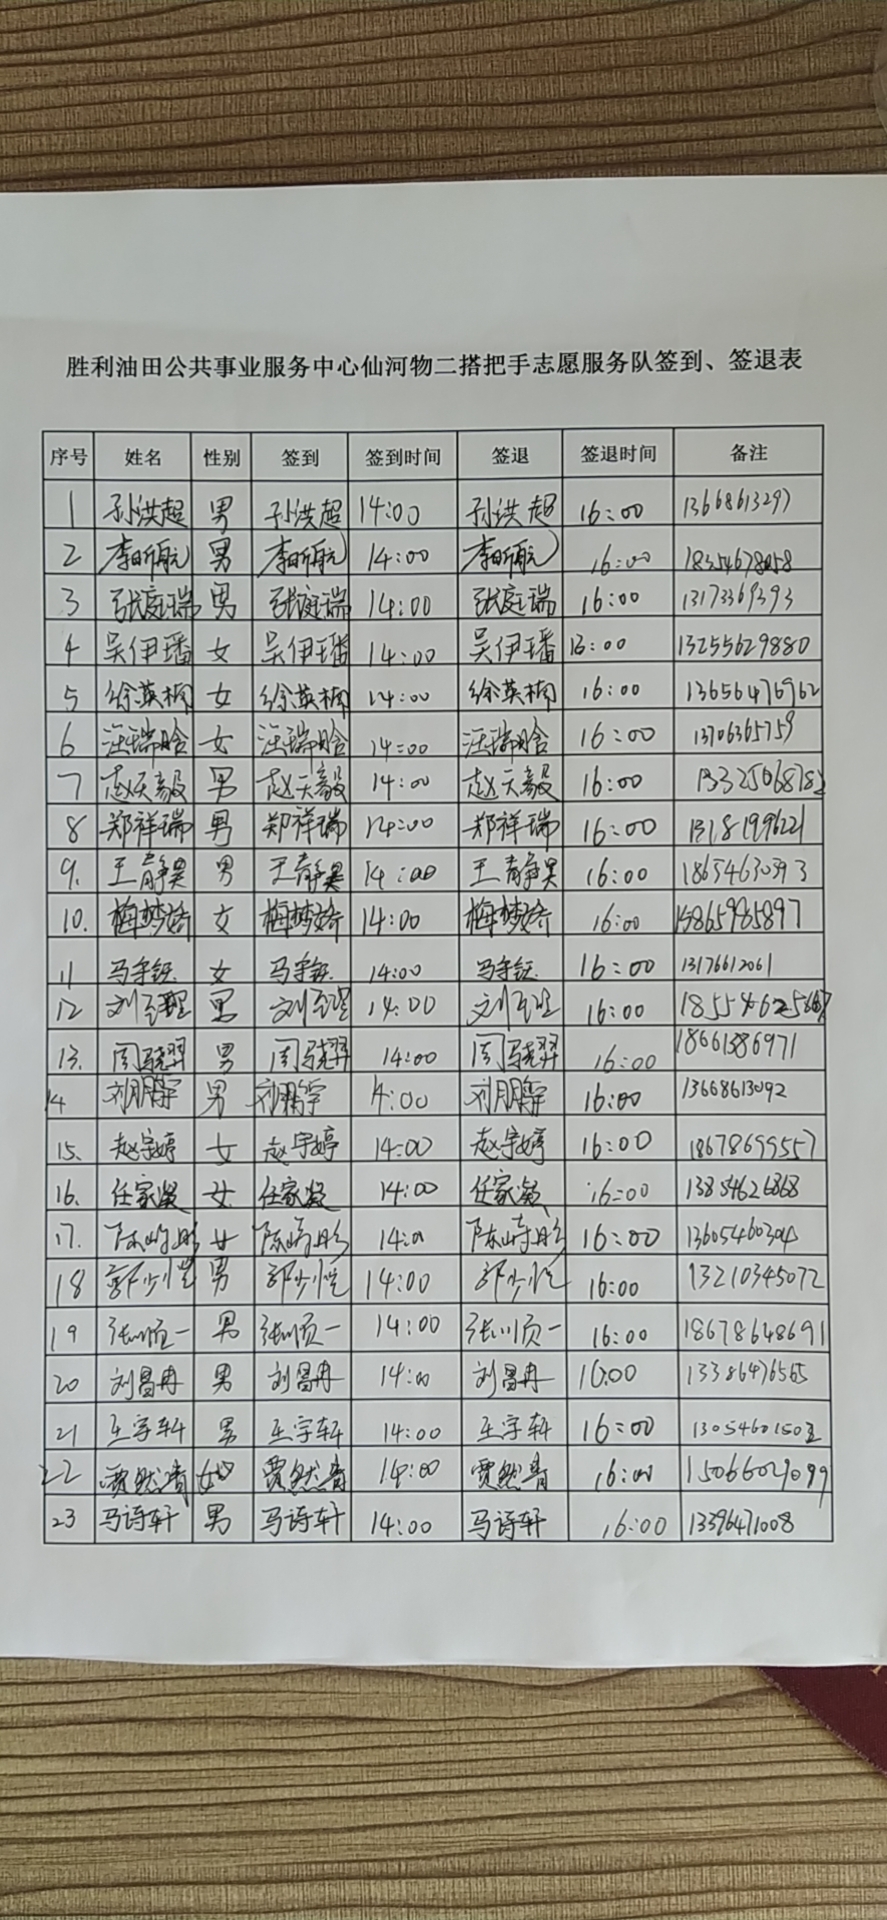 胜利油田公共事业服务中心仙河物二搭把手志愿服务队签到、签退表
序号 姓名 性别 签到 签到时间 签退 签退时间 备注
1 孙洪超 男 孙洪超 14:00 孙洪超 16:00 13668613297
2 李昕航 男 李昕航 14:00 李昕航 16:00 18354678058
3 张庭瑞 男 张庭瑞 14:00 张庭瑞 16:00 13173369393
4 吴伊璠 女 吴伊璠 14:00 吴伊璠 16:00 13255629880
5 徐英楠 女 徐英楠 14:00 徐英楠 16:00 13656476962
6 汪瑞晗 女 汪瑞晗 14:00 汪瑞晗 16:00 13706365759
7 赵天毅 男 赵天毅 14:00 赵天毅 16:00
8 郑祥瑞 男 郑祥瑞 14:00 郑祥瑞 16:00 13181996221
9. 王静昊 男 王静昊 14:00 王静昊 16:00 18654630393
10. 梅梦娇 女 梅梦娇 14:00 梅梦娇 16:00
11 马宇钰 女 马宇钰 14:00 马宇钰 16:00 13176612061
12 刘至理 男 14:00 16:00
13. 周骁羿 男 周骁羿 14:00 周骁羿 16:00 18661386971
14 刘鹏宇 男 刘鹏宇 14:00 刘鹏宇 16:00 13668613092
15. 赵宇婷 女 赵宇婷 14:00 赵宇婷 16:00 18678699557
16. 任家凝 女 任家凝 14:00 任家凝 16:00 13854626868
17. 陈崎彤 女 陈崎彤 14:00 陈崎彤 16:00 13605460304
18 郭少恺 男 郭少恺 14:00 郭少恺 16:00 13210345072
19 张顺一 男 张顺一 14:00 张顺一 16:00 18678648691
20 刘昌冉 男 刘昌冉 14:00 刘昌冉 16:00 13386476565
21 王宇轩 男 王宇轩 14:00 王宇轩 16:00
22 贾然青 女 贾然青 14:00 贾然青 16:00 15066029099
23 马诗轩 男 马诗轩 14:00 马诗轩 16:00 13396471008